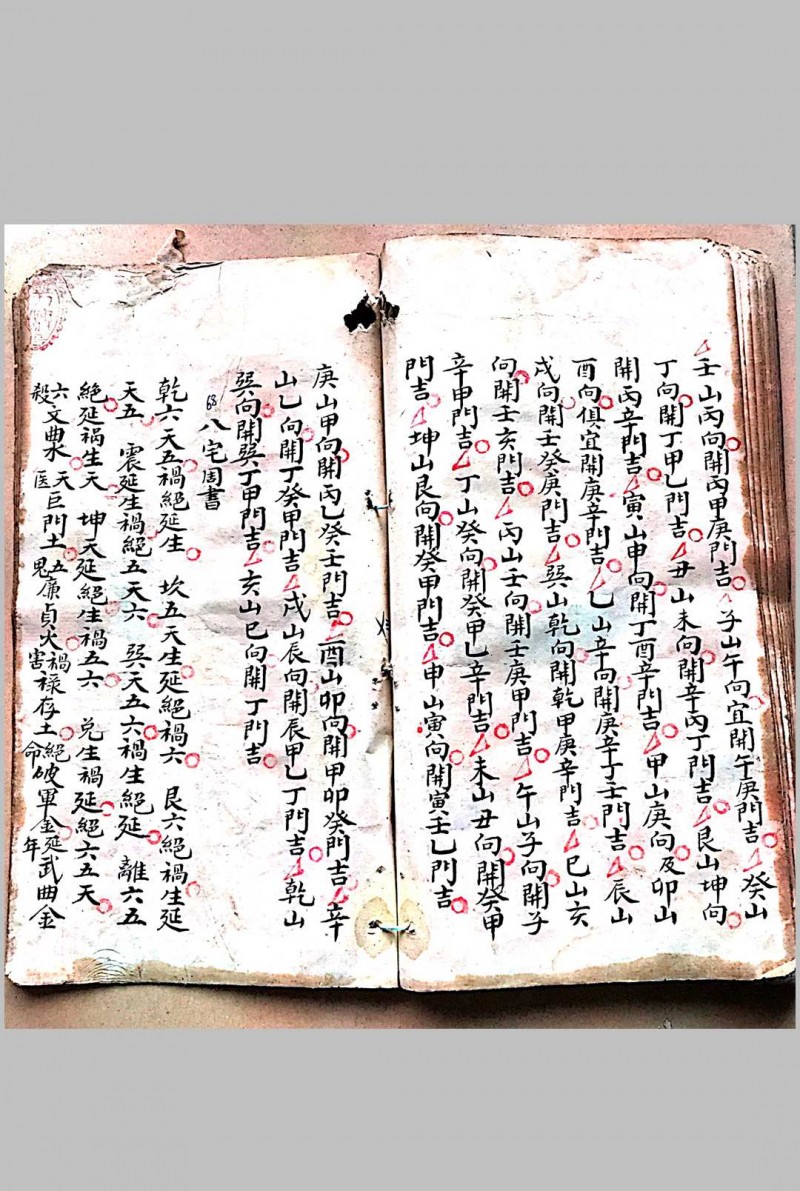 壬山丙向開丙甲庚門吉 子山午向宜開午庚門吉 癸山
丁向開丁甲乙門吉 丑山未向開辛丙丁門吉 艮山坤向
開丙辛門吉 寅山申向開丁酉辛門吉 甲山庚向及卯山
酉向俱宜開庚辛門吉 乙山辛向開庚辛丁壬門吉 辰山
戌向開壬癸庚門吉 巽山乾向開乾甲庚辛門吉 巳山亥
向開壬亥門吉 丙山壬向開壬庚甲門吉 午山子向開子
辛甲門吉 丁山癸向開癸甲乙辛門吉 未山丑向開癸甲
門吉 坤山艮向開癸甲門吉 申山寅向開寅壬乙門吉
庚山甲向開丙乙癸壬門吉 酉山卯向開甲卯癸門吉 辛
山乙向開丁癸甲門吉 戌山辰向開辰甲乙丁門吉 乾山
巽向開巽丁甲門吉 亥山巳向開丁門吉
68 八宅周書
乾六天五禍絕延生 坎五天生延絕禍六 艮六絕禍生延
天五 震延生禍絕五天六 巽天五六禍生絕延 離六五
絕延禍生天 坤天延絕生禍五六 兌生禍延絕六五天
六殺文曲水 天医巨門土 五鬼廉貞火 禍害祿存土 絕命破軍金 延年武曲金